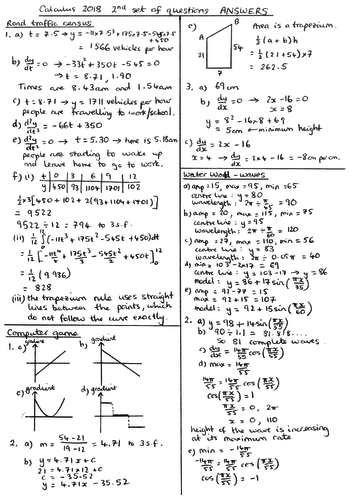 Calculus 2018 2nd set of questions ANSWERS
Road traffic census
1. a) t = 7.5 → y = -11×7.5³ + 175×7.5² - 545×7.5 + 450
= 1566 vehicles per hour
b) dy/dt = 0 → -33t² + 350t - 545 = 0
→ t = 8.71, 1.90
Times are 8.43am and 1.54am
c) t = 8.71 → y = 1711 vehicles per hour
people are travelling to work/school.
d) d²y/dt² = -66t + 350
e) d²y/dt² = 0 → t = 5.30 → here is 5.18am
people are starting to wake up
and leave home to go to work.
f) (i) t 0 3 6 9 12
y 450 93 1104 1701 102
½×3[450 + 102 + 2(93 + 1104 + 1701)]
= 9522
9522 ÷ 12 = 794 to 3 s.f.
(ii) 1/12 ∫(-11t³ + 175t² - 545t + 450)dt
= 1/12 [-11t⁴/4 + 175t³/3 - 545t²/2 + 450t]₀¹²
= 1/12 (9936)
= 828
(iii) the trapezium rule uses straight
lines between the points, which
do not follow the curve exactly.
Computer game
1. a) gradient
b) gradient
c) gradient
d) gradient
2. a) m = 54-21/19-12 = 4.71 to 3 s.f.
b) y = 4.71x + c
21 = 4.71×12 + c
c = -35.52
y = 4.71x - 35.52
c) Area is a trapezium.
A B 21 54 7
½(a+b)h
= ½(21+54)×7
= 262.5
3. a) 69cm
b) dy/dx = 0 → 2x - 16 = 0
x = 8
y = 8² - 16×8 + 69
= 5cm ← minimum height
c) dy/dx = 2x - 16
x = 4 → dy/dx = 2×4 - 16 = -8cm per cm.
Water World - waves
1. a) amp = 15, max = 95, min = 65
centre line: y = 80
wavelength: 2π ÷ π/45 = 90
b) amp = 20, max = 115, min = 75
centre line: y = 95
wavelength: 2π ÷ π/60 = 120
c) amp = 27, max = 110, min = 56
centre line: y = 83
wavelength: 2π ÷ 0.05π = 40
d) min = 103 - 2×17 = 69
centre line: y = 103 - 17 → y = 86
model: y = 86 + 17sin
e) amp = 92 - 77 = 15
max = 92 + 15 = 107
model: y = 92 + 15sin
2. a) y = 98 + 14sin(πx/55)
b) 90 ÷ 1.1 = 81.818...
So 81 complete waves.
c) dy/dx = 14π/55 cos(πx/55)
d) max = 14π/55
14π/55 = 14π/55 cos(πx/55)
cos(πx/55) = 1
πx/55 = 0, 2π
x = 0, 110
height of the wave is increasing
at its maximum rate
e) min = -14π/55
-14π/55 = 14π/55 cos(πx/55)
cos(πx/55) = -1